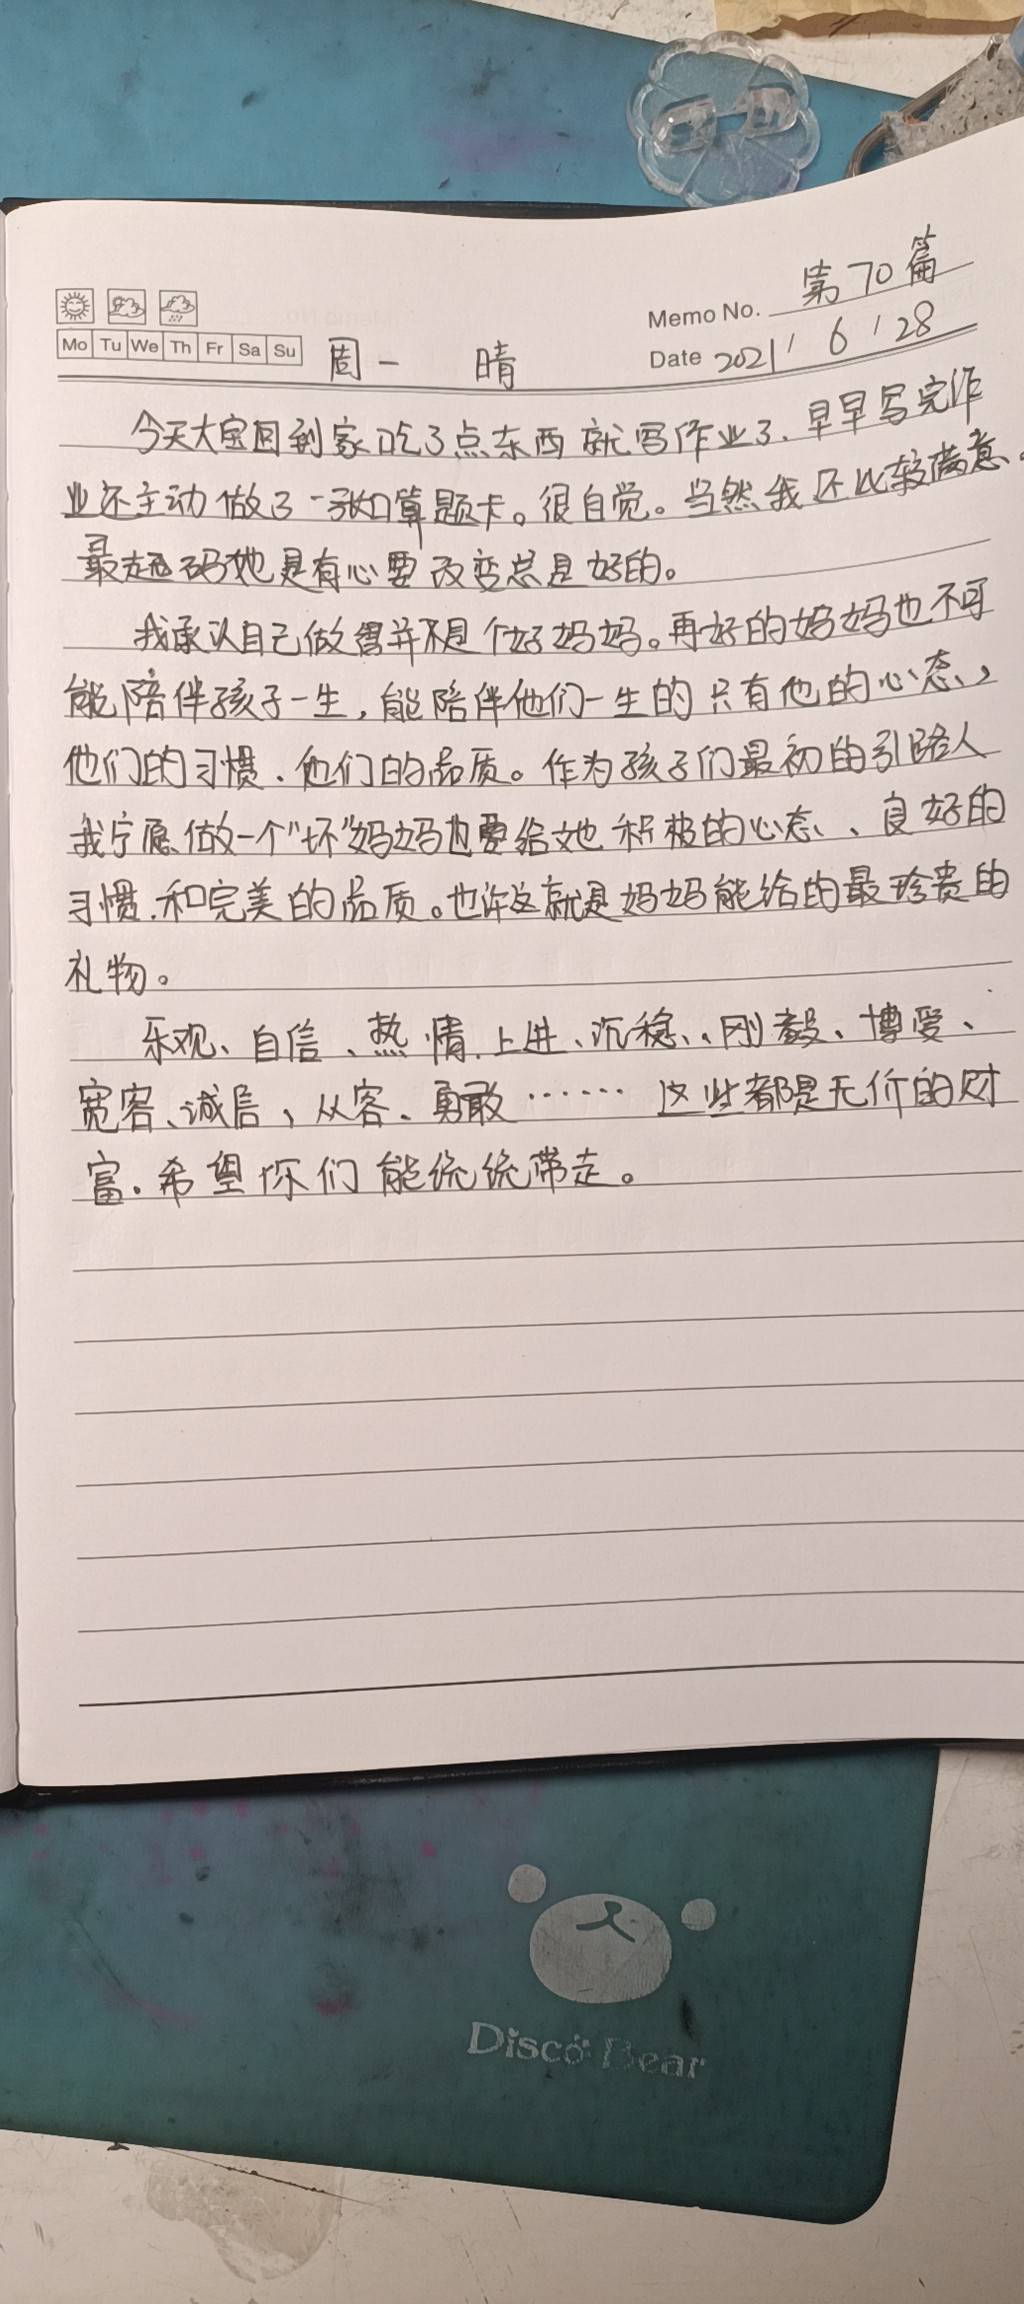 Memo No. 第70篇
Mo Tu We Th Fr Sa Su 周一 晴 Date 2021/6/28
今天大宝回到家吃了点东西就写作业了.早早写完作
业还主动做了一张口算题卡。很自觉。当然我还比较满意。
最起码她是有心要改变总是好的。
我承认自己做得并不是个好妈妈。再好的妈妈也不可
能陪伴孩子一生,能陪伴他们一生的只有他的心态、
他们的习惯.他们的品质。作为孩子们最初的引路人
我宁愿做一个"坏"妈妈也要给她积极的心态、良好的
习惯.和完美的品质。也许这就是妈妈能给的最珍贵的
礼物。
乐观、自信、热情.上进、沉稳、刚毅、博爱、
宽容、诚信、从容、勇敢……这些都是无价的财
富.希望你们能统统带走。
Disco Bear